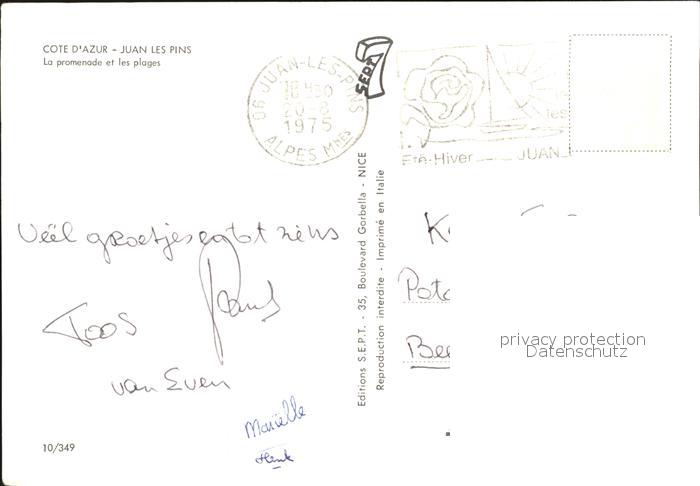 COTE D'AZUR - JUAN LES PINS
La promenade et les plages
06 JUAN-LES-PINS
18H30
20-8
1975
ALPES Mmes
SEPT
les
Eté-Hiver JUAN
Veel groetjes en tot ziens
Toos
van Even
Mariëlle
Henk
10/349
Editions S.E.P.T. - 35, Boulevard Gorbella - NICE
Reproduction interdite - Imprimé en Italie
K
Pot
Bee
privacy protection
Datenschutz